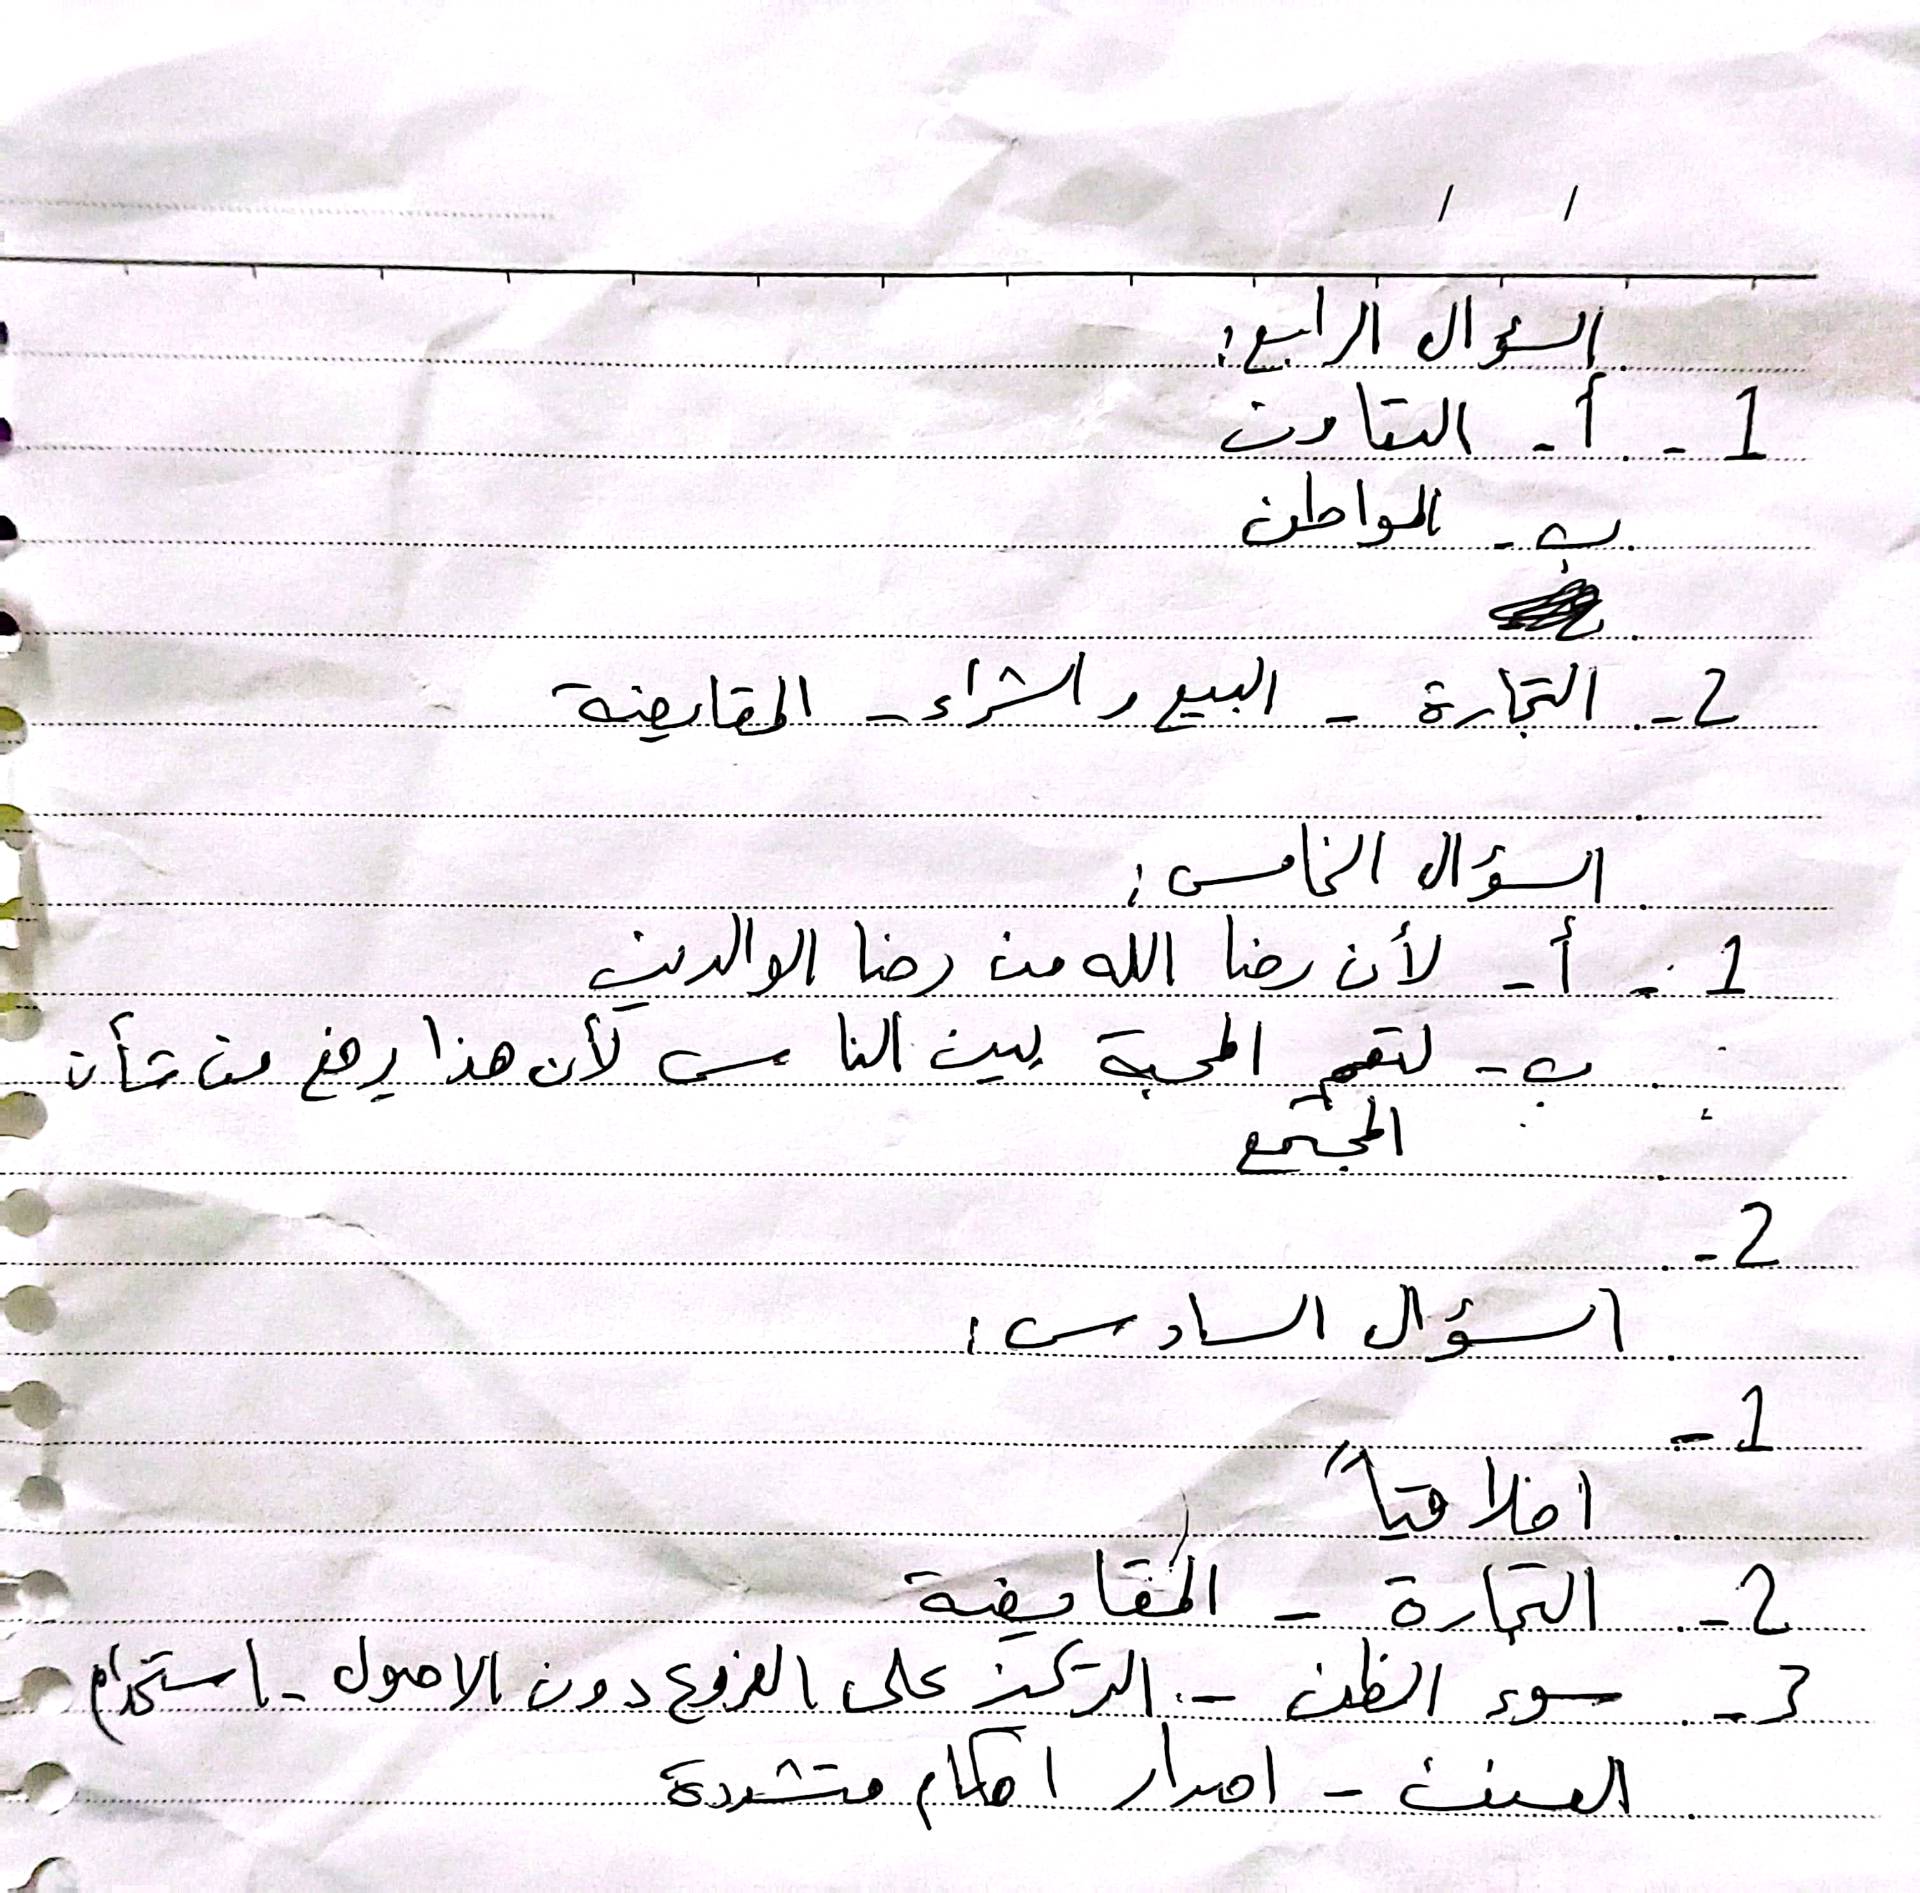 / /
السؤال الرابع:
1 - أ - التعاون
ب - المواطن
2 - التجارة - البيع والشراء - المقايضة
السؤال الخامس:
1 - أ - لأن رضا الله من رضا الوالدين
ب - لتعم المحبة بين الناس لأن هذا يرفع من شأن
المجتمع
2 -
السؤال السادس:
1 -
اخلاقياً
2 - التجارة - المقايضة
3 - سوء الظن - التركيز على الفروع دون الاصول - استخدام
العنف - اصدار احكام متشددة